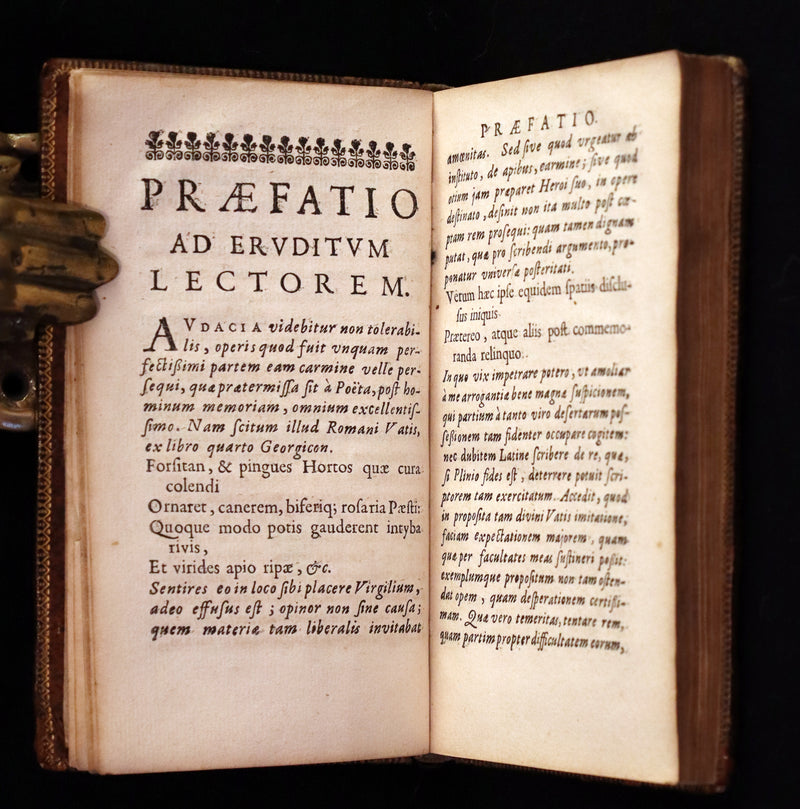 PRÆFATIO
AD ERVDITVM
LECTOREM.
AVDACIA videbitur non tolerabi-
lis, operis quod fuit vnquam per-
fectißimi partem eam carmine velle per-
sequi, quæ prætermissa sit à Poëta, post ho-
minum memoriam, omnium excellentis-
simo. Nam scitum illud Romani Vatis,
ex libro quarto Georgicon.
Forsitan, & pingues Hortos quæ cura
colendi
Ornaret, canerem, biferiq; rosaria Pæsti:
Quoque modo potis gauderent intyba
rivis,
Et virides apio ripæ, &c.
Sentires eo in loco sibi placere Virgilium,
adeo effusus est; opinor non sine causa;
quem materia tam liberalis invitabat
PRÆFATIO.
amœnitas. Sed sive quod vrgeatur ab
instituto, de apibus, carmine; sive quod
otium jam præparet Heroi suo, in opere
destinato, desinit non ita multo post cœ-
ptam rem prosequi: quam tamen dignam
putat, quæ pro scribendi argumento, pro-
ponatur universæ posteritati.
Verum hæc ipse equidem spatiis disclu-
sus iniquis
Prætereo, atque aliis post commemo-
randa relinquo.
In quo vix impetrare potero, vt amoliar
à me arrogantiæ bene magnæ suspicionem,
qui partium à tanto viro desertarum pos-
sessionem tam fidenter occupare cogitem:
nec dubitem Latine scribere de re, quæ,
si Plinio fides est, deterrere potuit scri-
ptorem tam exercitatum. Accedit, quod
in proposita tam divini Vatis imitatione,
faciam expectationem majorem, quam
quæ per facultates meas sustineri poßit:
exemplumque propositum non tam osten-
dat opem, quam desperationem certißi-
mam. Quæ vero temeritas, tentare rem,
quam partim propter difficultatem eorum,